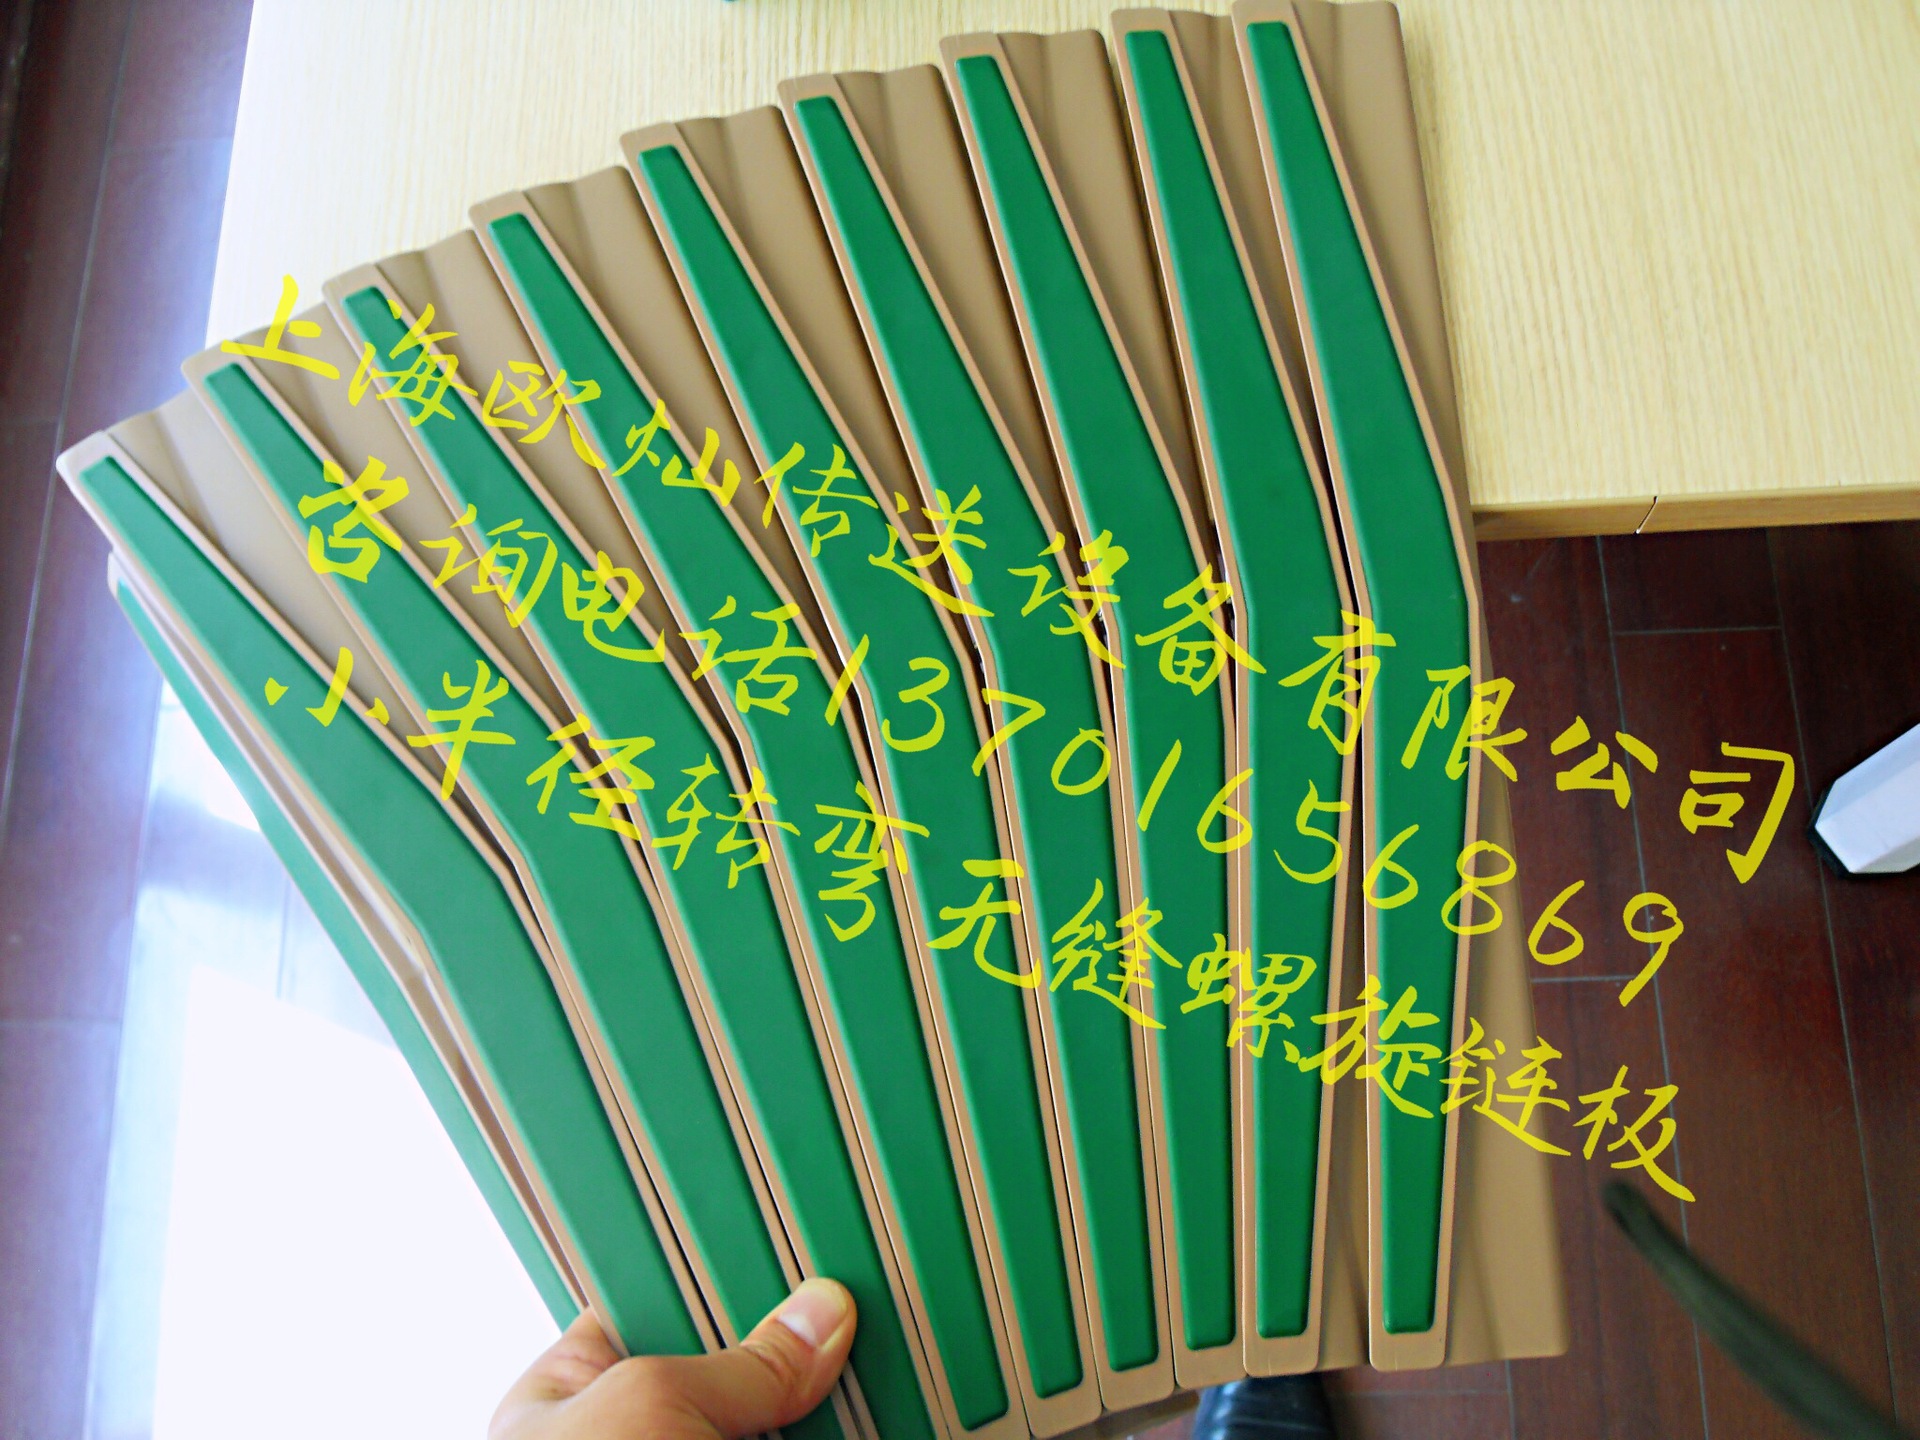 上海欧灿传送设备有限公司
咨询电话13701656869
小半径转弯无缝螺旋链板